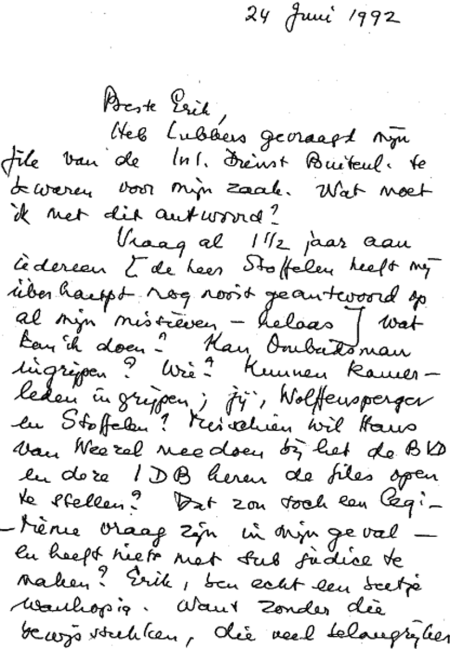 24 Juni 1992
Beste Erik,
Heb Lubbers gevraagd mijn
file van de Inl. Dienst Buitenl. te
bewaren voor mijn zaak. Wat moet
ik met dit antwoord?
Vraag al 1 1/2 jaar aan
iedereen [de heer Stoffelen heeft mij
überhaupt nog nooit geantwoord op
al mijn missieven – helaas] wat
kan ik doen? Kan Ombudsman
ingrijpen? Wie? Kunnen kamer-
leden ingrijpen; jij, Wolffensperger
en Stoffelen? Misschien wil Hans
van Weezel meedoen bij het de BVD
en deze IDB heren de files open
te stellen? Dat zou toch een legi-
-tieme vraag zijn in mijn geval –
en heeft niets met sub judice te
maken? Erik, ben echt een beetje
wanhopig. Want zonder die
bewijsstukken, die veel belangrijker